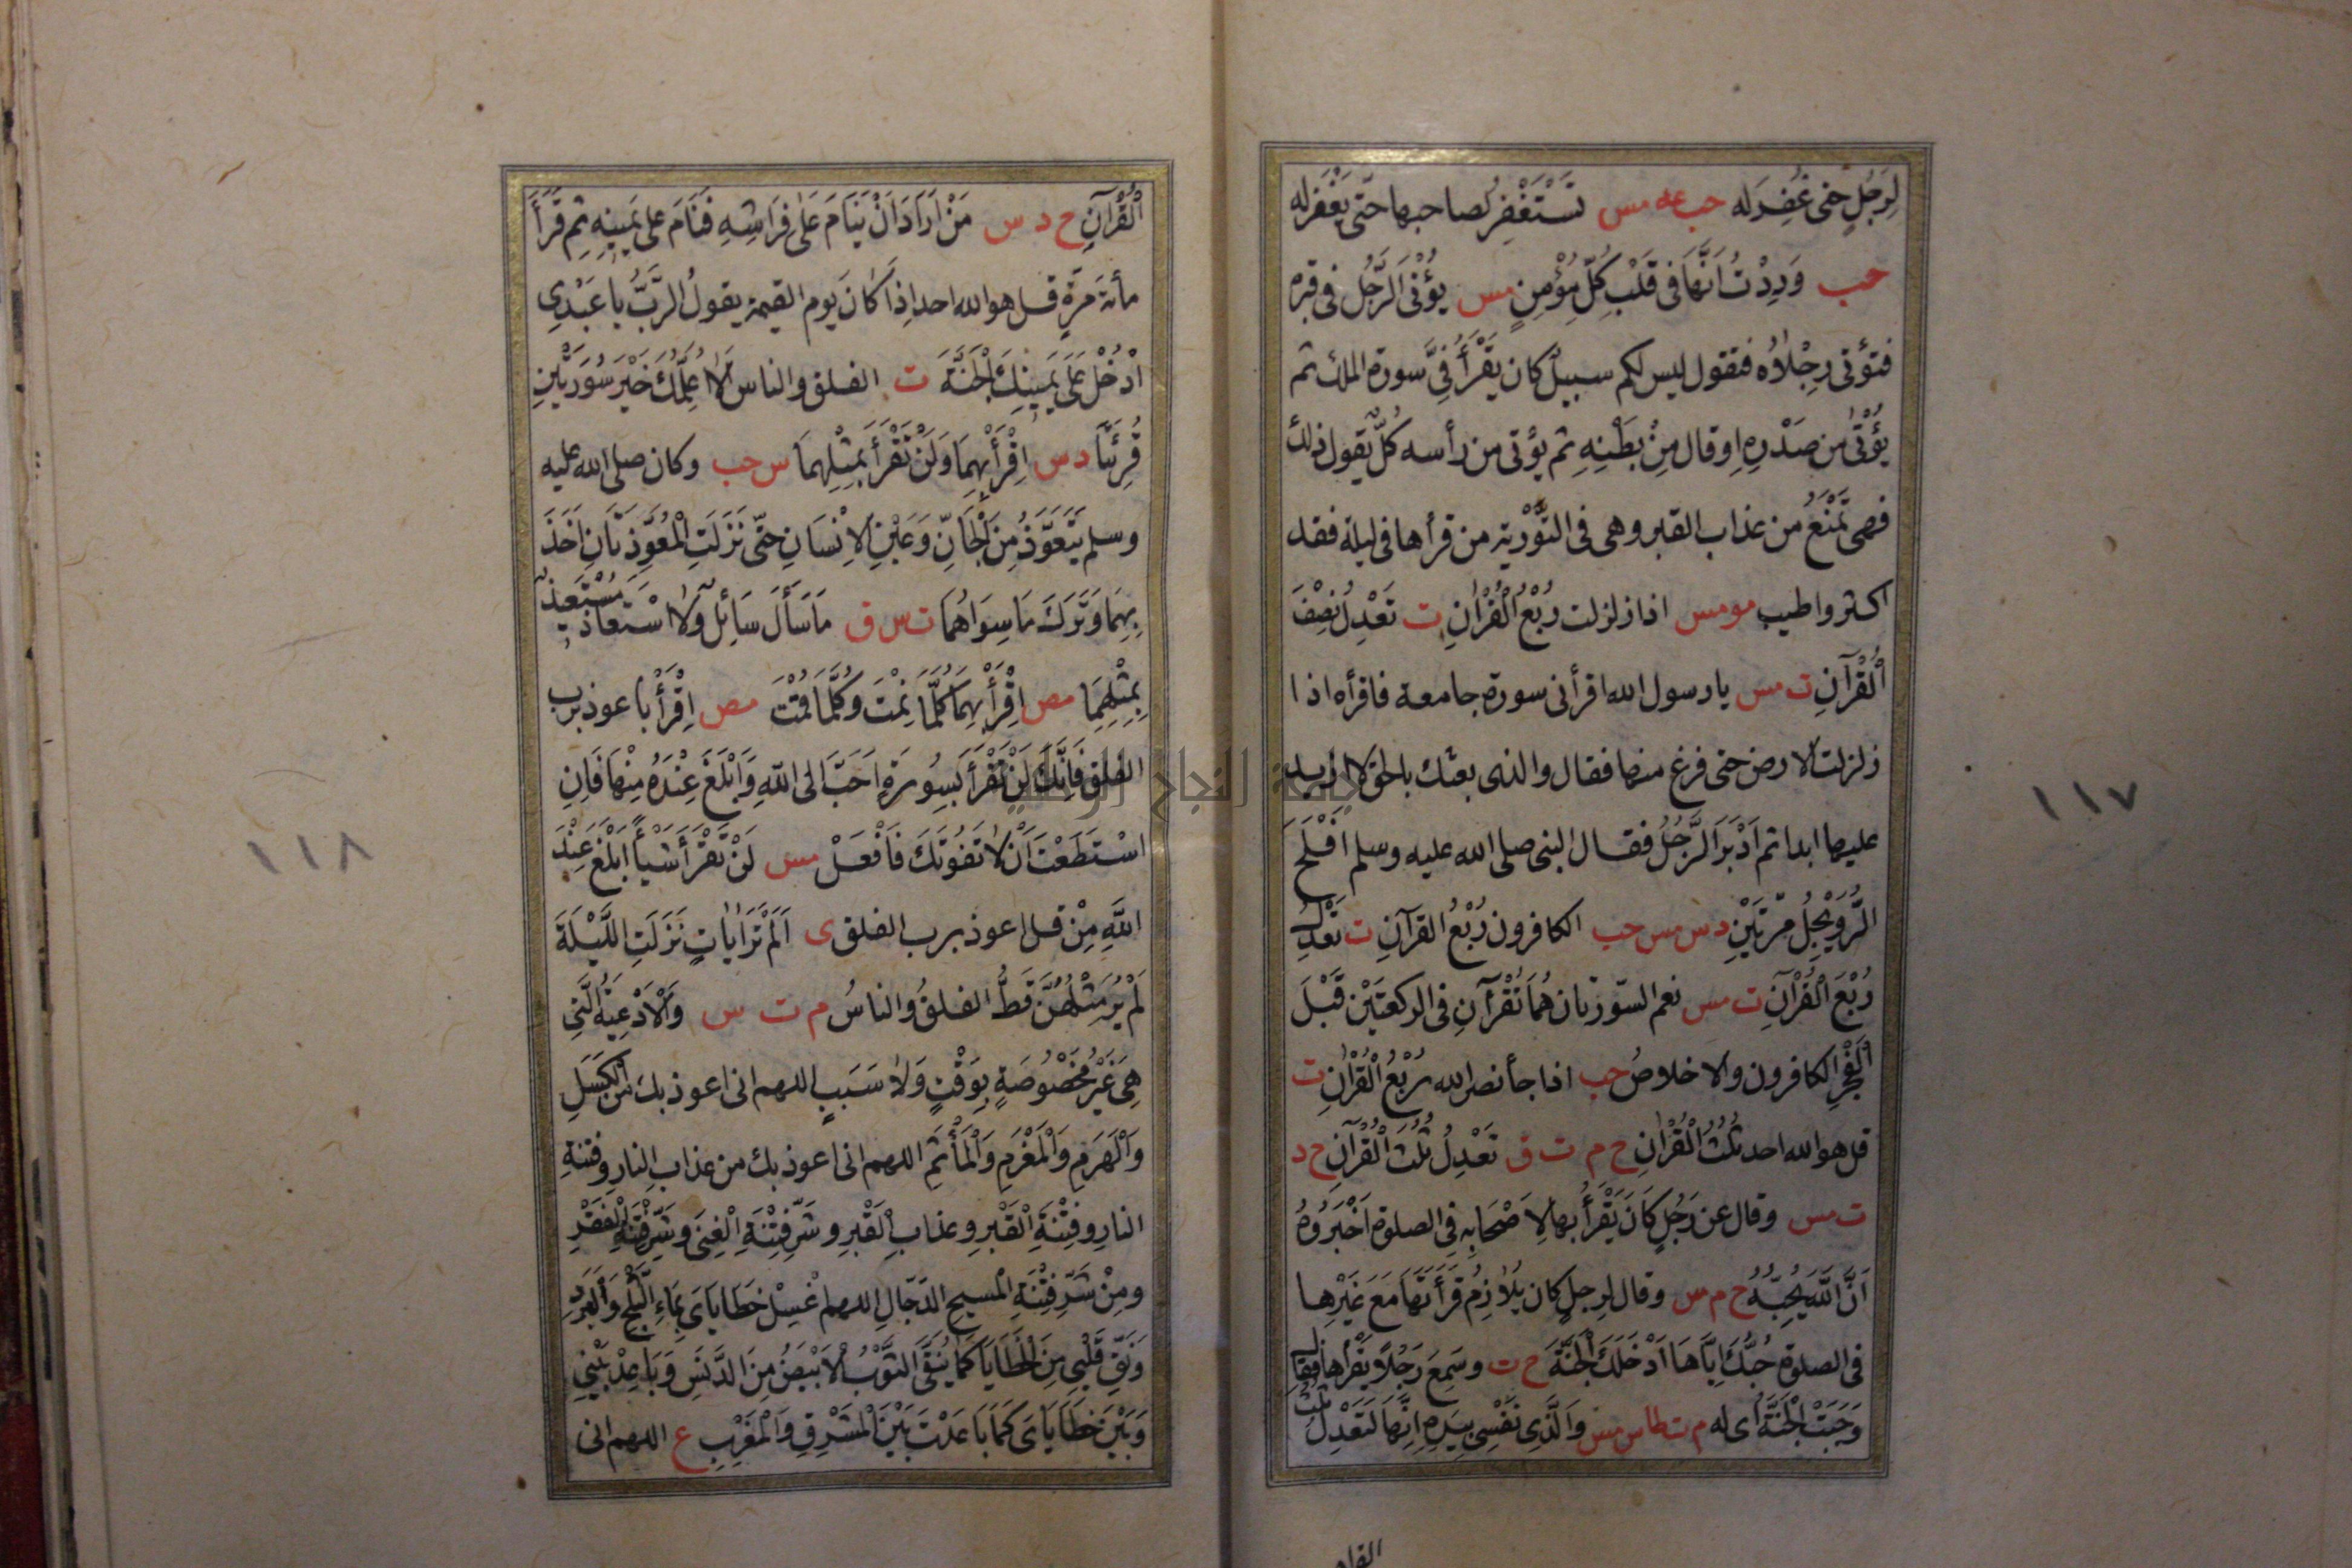 لِرَجُلٍ حتى غُفِرَ له حب عه مس تَسْتَغْفِرُ لصاحبها حتى يُغْفَر له
حب وَدِدْتُ اَنَّهَا فى قَلْبِ كُلِّ مُؤْمِنٍ مس يُؤْتَى الرَّجُل فى قبره
فتؤتى رِجْلَاهُ فتقول ليس لكم سبيلٌ كان يَقْرَأُ فِىَّ سورة الملك ثم
يُؤْتَى من صَدْرِهِ اوقال مِنْ بَطْنِهِ ثم يؤتى من رأسه كلٌّ يقول ذلك
فهى تَمْنَعُ من عذاب القبر وهى فى التَّوْرٰية من قرأها فى ليلة فقد
اكثر واطيب مومس اذا زلزلت رُبْعُ الْقُرْاٰنِ ت تَعْدِلُ نِصْفَ
الْقُرْآنِ ت مس يا رسول الله اقرأنى سورة جامعة فاقرأه اذا
زلزلت الارض حتى فرغ منها فقال والذى بعثك بالحق لا ازيد
عليها ابدا ثم اَدْبَرَ الرَّجُلُ فقال النبى صلى الله عليه وسلم اَفْلَحَ
الرُّوَيْجِلُ مَرّتَيْنِ د س مس حب الكافرون رُبْعُ القرآنِ ت تَعْدِلُ
رُبْعَ الْقُرْآنِ ت مس نعم السّورتان هُمَا تُقْرَآنِ فى الركعتَيْن قَبْلَ
الْفَجْرِ الكافرون والاخلاصُ حب اذا جأ نصر الله رُبْعُ الْقُرْاٰنِ ت
قل هو الله احد ثُلُثُ الْقُرْاٰنِ خ م ت ق تَعْدِلُ ثُلُثَ الْقُرْآنِ خ د
ت مس وقال عن رَجُلٍ كَانَ يَقْرَأُ بها لِاَصْحَابِهِ فِى الصلوة اَخْبِرُوهُ
اَنَّ اللّٰهَ يُحِبُّهُ خ م س وقال لِرجلٍ كان يُلَازِمُ قَرأَتَهَا مَعَ غَيْرِها
فى الصلوة حُبُّكَ اِيَّاهَا اَدْخَلَكَ الْجَنَّةَ خ ت وسَمِعَ رَجُلًا يَقْرأها فقال
وَجَبَتْ الْجَنَّةُ اى له م ت طا س مس وَالَّذِى نَفْسِى بِيَدِهِ اِنَّهَا لَتَعْدِلُ ثُلُثَ
القران
١١٧
الْقُرْآنِ خ د س مَنْ اَرَادَ اَنْ يَنَامَ عَلَى فِرَاشِهِ فَنَامَ على يَمِينِهِ ثم قَرَأَ
مأئة مَرةٍ قل هو الله احد اِذَا كَانَ يوم القيمة يقولُ الرَّبُّ يا عَبْدِى
اُدْخُلْ عَلَى يَمِينِكَ الْجَنَّةَ ت الفلق والناس اَلَا اُعَلِّمُكَ خَيْرَ سُورَتَيْنِ
قُرِئَتَا د س اِقْرَأْ بِهِمَا وَلَنْ تَقْرَأَ بِمِثْلِهِمَا س حب وكان صلى الله عليه
وسلم يَتَعَوَّذُ مِنَ الْجَانِّ وَعَيْنِ الْاِنْسَانِ حَتّى نَزَلَتِ الْمُعَوِّذَتَانِ اَخَذَ
بِهِمَا وَتَرَكَ مَا سِوَاهُمَا ت س ق مَا سَأَلَ سَائِلٌ وَلَا اسْتَعَاذَ مُسْتَعِيذٌ
بِمِثْلِهِمَا مص اِقْرَأْ بِهِمَا كُلَّمَا نِمْتَ وَكُلَّمَا قُمْتَ مص اِقْرَأْ باعوذ برب
الفلق فَاِنَّكَ لَنْ تَقْرَأَ بِسُورَةٍ اَحَبَّ الى اللّٰهِ وَاَبْلَغَ عِنْدَهُ مِنْهَا فَاِنِ
اسْتَطَعْتَ اَنْ لَا تَفُوتَكَ فَافْعَلْ مس لَنْ تَقْرَأَ شَيْأً اَبْلَغَ عِنْدَ
اللّٰهِ مِنْ قل اعوذ برب الفلق ى اَلَمْ تَرَ اٰيَاتٍ نَزَلَتِ اللَّيْلَةَ
لَمْ يُرَ مِثْلُهُنَّ قَطُّ الفلقُ والناسُ م ت س وَالْاَدْعِيَةُ الَّتِى
هِىَ غَيْرُ مَخْصُوصَةٍ بِوَقْتٍ وَلَا سَبَبٍ اللهم انى اعوذ بك من الْكَسَلِ
وَالْهَرَمِ وَالْمَغْرَمِ وَالْمَأْثَمِ اللهم انى اعوذ بك من عذابِ النار وفتنةِ
النارِ وفِتْنَةِ الْقَبْرِ وعذابِ الْقَبْرِ وشَرِّ فِتْنَةِ الْغِنَى وشَرِّ فِتْنَةِ الْفَقْرِ
ومِنْ شَرِّ فِتْنَةِ الْمسيح الدّجّالِ اللهم اغْسِلْ خَطَايَاىَ بِمَاءِ الثَّلْجِ وَالْبَرَدِ
وَنَقِّ قَلْبِى مِنَ الْخَطَايَا كَمَا يُنَقَّى الثَّوْبُ الْاَبْيَضُ مِنَ الدَّنَسِ وَبَاعِدْ بَيْنِى
وَبَيْنَ خَطَايَاىَ كَمَا بَاعَدْتَ بَيْنَ الْمَشْرِقِ وَالْمَغْرِبِ ع اللهم انى
١١٨
جامعة النجاح الوطنية